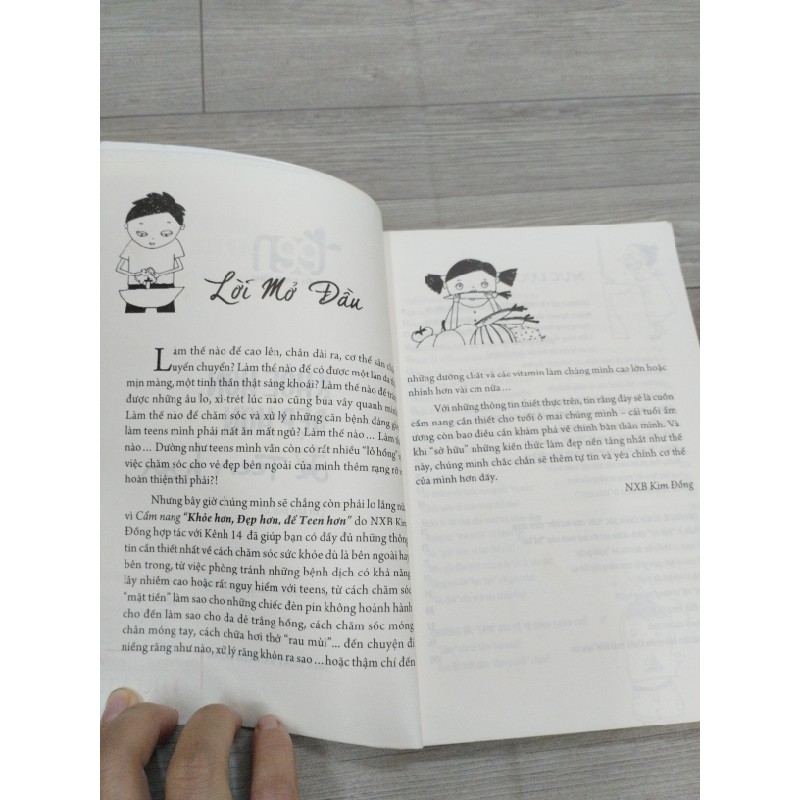 Lời Mở Đầu
Làm thế nào để cao lên, chân dài ra, cơ thể săn
uyển chuyển? Làm thế nào để có được một làn da
mịn màng, một tinh thần thật sảng khoái? Làm thế nào để
được những âu lo, xì-trét lúc nào cũng bủa vây quanh
Làm thế nào để chăm sóc và xử lý những căn bệnh đáng
làm teens mình phải mất ăn mất ngủ? Làm thế nào… Làm thế
nào… Dường như teens mình vẫn còn có rất nhiều "lỗ hổng"
việc chăm sóc cho vẻ đẹp bên ngoài của mình thêm rạng rỡ
hoàn thiện thì phải?!
Nhưng bây giờ chúng mình sẽ chẳng còn phải lo lắng
vì Cẩm nang "Khỏe hơn, Đẹp hơn, để Teen hơn" do NXB Kim
Đồng hợp tác với Kênh 14 đã giúp bạn có đầy đủ những thông
tin cần thiết nhất về cách chăm sóc sức khỏe dù là bên ngoài hay
bên trong, từ việc phòng tránh những bệnh dịch có khả năng
lây nhiễm cao hoặc rất nguy hiểm với teens, từ cách chăm sóc
"mặt tiền" làm sao cho những chiếc đèn pin không hoành hành
cho đến làm sao cho da dẻ trắng hồng, cách chăm sóc móng
chân móng tay, cách chữa hơi thở "rau mùi"... đến chuyện đi
niềng răng như nào, xử lý răng khôn ra sao …hoặc thậm chí đến
những dưỡng chất và các vitamin làm chàng mình cao lớn hoặc
nhỉnh hơn vài cm nữa…
Với những thông tin thiết thực trên, tin rằng đây sẽ là cuốn
cẩm nang cần thiết cho tuổi ô mai chúng mình – cái tuổi ẩm
ương còn bao điều cần khám phá về chính bản thân mình. Và
khi "sở hữu" những kiến thức làm đẹp nền tảng nhất như thế
này, chúng mình chắc chắn sẽ thêm tự tin và yêu chính cơ thể
của mình hơn đấy.
NXB Kim Đồng